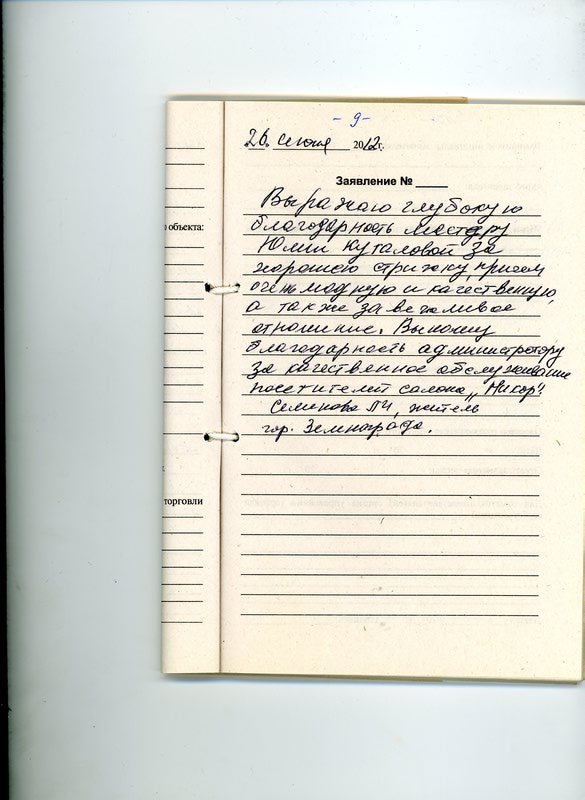 - 9-
26. июня 2012г.
Заявление №
объекта:
Выражаю глубокую
благодарность мастеру
Юлии Куталовой за
хорошею стрижку причем
очень модную и качественную,
а также за вежливое
отношение. Выношу
благодарность администротору
за качественное обслуживание
посетителей салона „Микор".
Семикова Л И, житель
гор. Зеленограда.
торговли